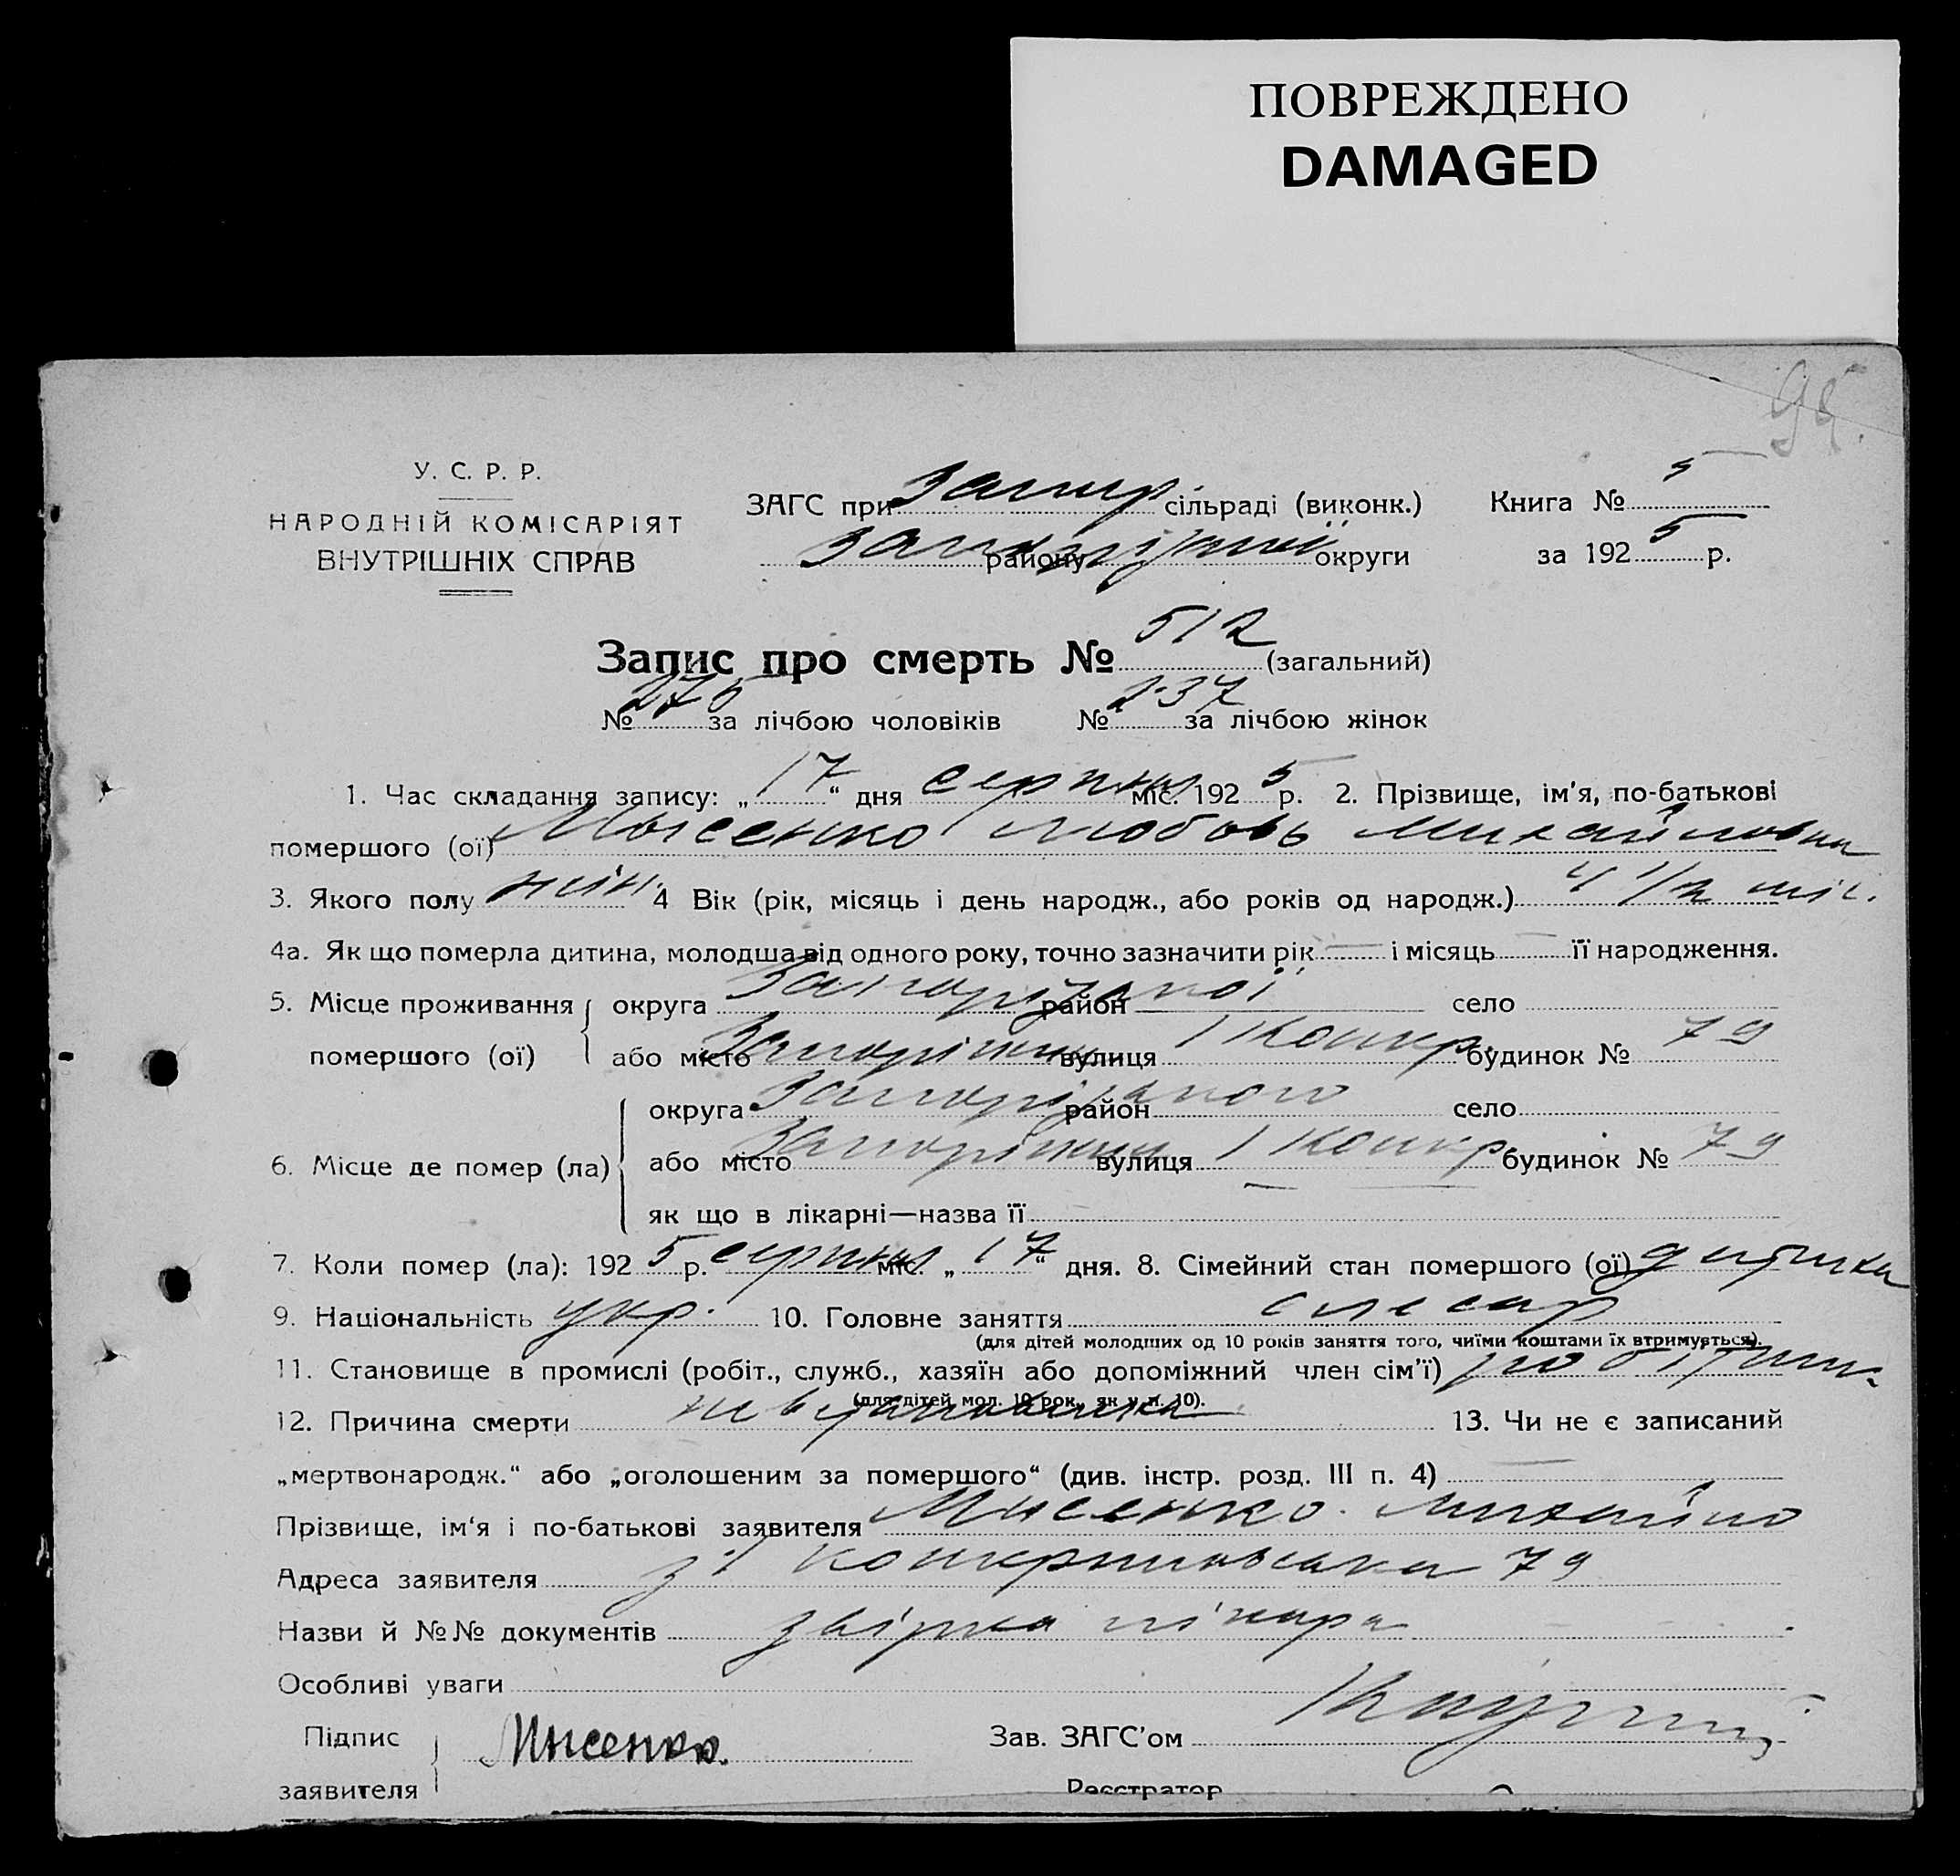 ПОВРЕЖДЕНО
DAMAGED
95.
У. С. Р. Р.
НАРОДНІЙ КОМІСАРІЯТ
ВНУТРІШНІХ СПРАВ
ЗАГС при Запор. сільраді (виконк.) Книга № 5
Запорізької району округи за 1925 р.
Запис про смерть № 512 (загальний)
№ 275 за лічбою чоловіків № 237 за лічбою жінок
1. Час складання запису: „17“ дня серпня міс. 1925 р. 2. Прізвище, ім'я, по-батькові
помершого (ої) Мысенко Любовь Михайловна
3. Якого полу жін. 4 Вік (рік, місяць і день народж., або років од народж.) 4 1/2 міс.
4а. Як що померла дитина, молодша від одного року, точно зазначити рік — і місяць — її народження.
5. Місце проживання помершого (ої) округа Запорізької район село
або місто Запоріжжя вулиця 1 будинок № 79
6. Місце де помер (ла) округа Запорізького район село
або місто Запоріжжя вулиця 1 будинок № 79
як що в лікарні—назва її
7. Коли помер (ла): 1925 р. серпня міс. „17“ дня. 8. Сімейний стан помершого (ої) дитинка
9. Національність укр. 10. Головне заняття слесар
(для дітей молодших од 10 років заняття того, чиїми коштами їх втримується).
11. Становище в промислі (робіт., служб., хазяїн або допоміжний член сім'ї) робітник
(для дітей мол. 10 рок., як у п. 10).
12. Причина смерти 13. Чи не є записаний
„мертвонародж.“ або „оголошеним за помершого“ (див. інстр. розд. III п. 4) —
Прізвище, ім'я і по-батькові заявителя Мисенко Михайло
Адреса заявителя 79
Назви й №№ документів лікаря
Особливі уваги
Підпис заявителя Мысенко. Зав. ЗАГС'ом
Реєстратор